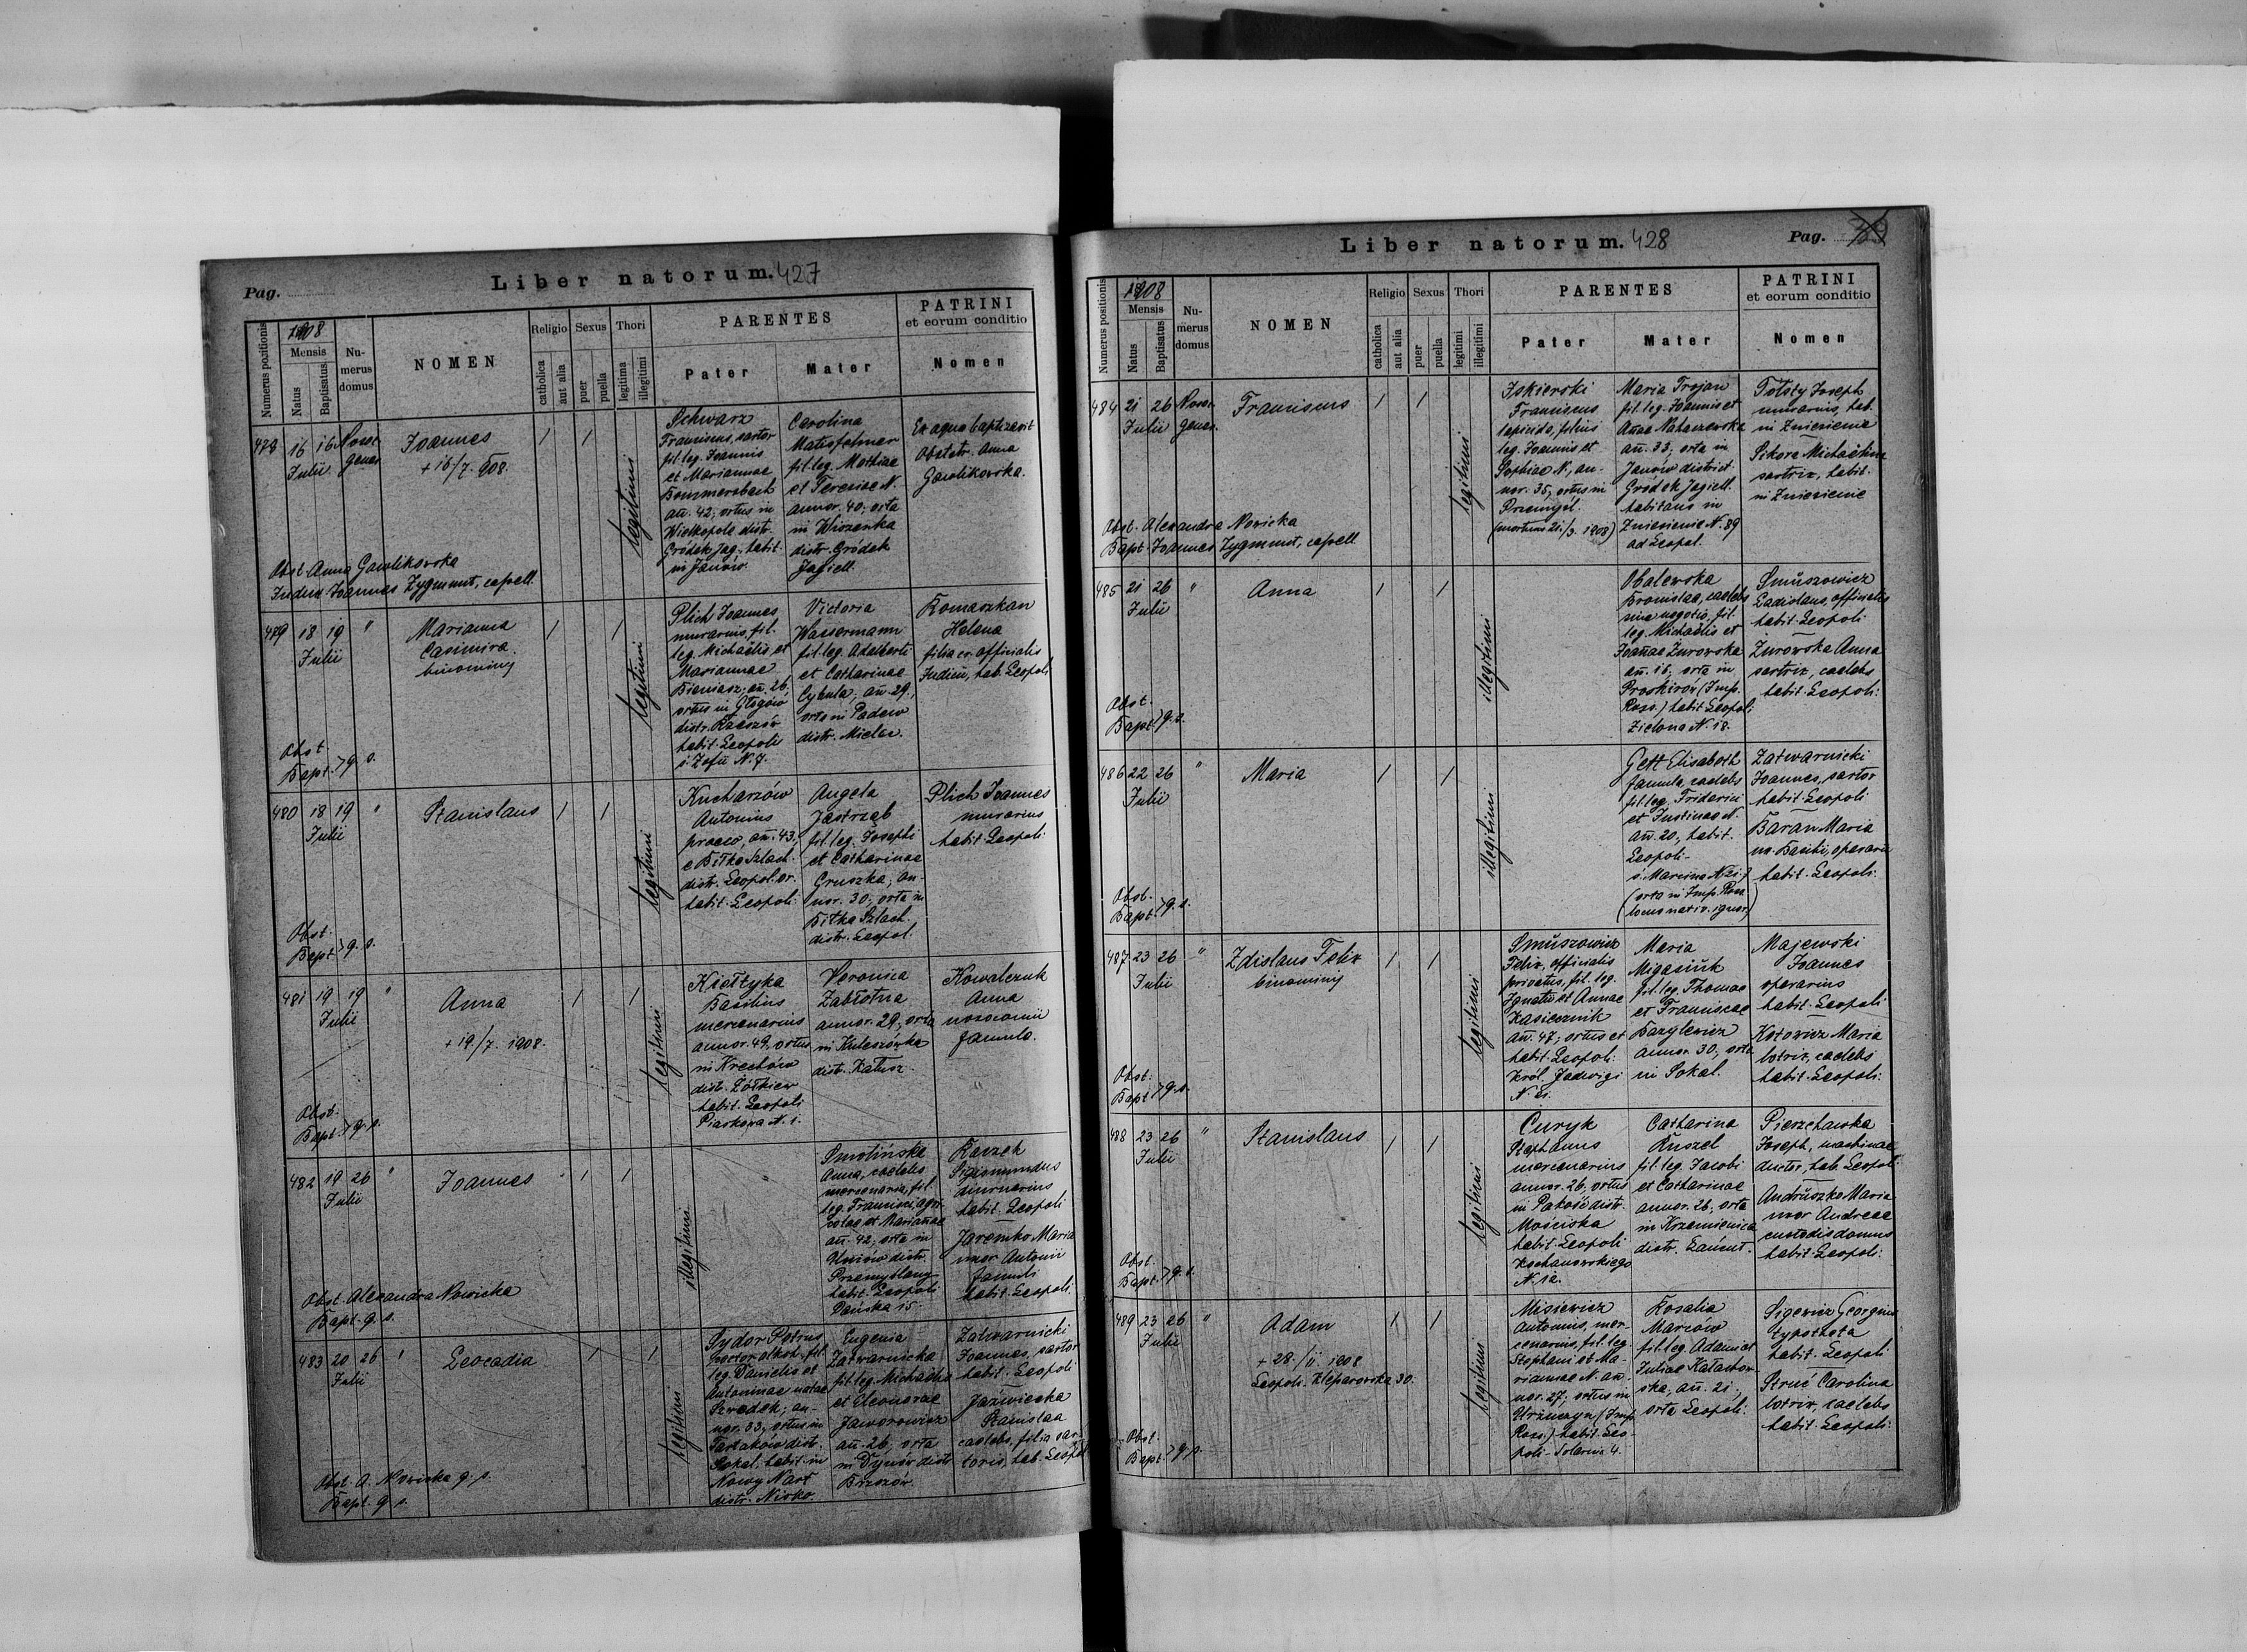 Pag.
Liber natorum. 427
Numerus pozitionis
1908
Mensis
Natus
Baptisatus
Nu-
merus
domus
NOMEN
Religio
catholica
aut alia
Sexus
puer
puella
Thori
legitima
illegitimi
PARENTES
Pater
Mater
PATRINI
et eorum conditio
Nomen
478 16 16 Nosoc.
Julii genes.
Joannes
+ 16/7. 908.
/ /
legitimi
Schwarz
Franciscus, sartor
fil. leg. Joannis
et Mariannae
Bommersbach
añ. 42, ortus in
Wielkopole distr.
Gródek Jag., habit.
in Janów.
Carolina
fil. leg. Mathiae
et Teresiae N.
annor. 40, orta
in
distr. Gródek
Jagiell.
Ex aqua baptizavit
Obstetr. Anna
Gawlikowska.
Obst. Anna Gawlikowska
Joannes Zygmunt, capell.
479 18 19 "
Julii
Marianna
Casimira
binominis
/ /
legitimi
Plich Joannes
murarius, fil.
leg. Michaëlis et
Mariannae
Biemasz, añ. 26,
ortus in Głogów
distr. Rzeszów
habit. Leopoli
ś. Zofii N. 7.
Victoria
Wassermann
fil. leg. Adalberti
et Catharinae
Cybula, añ. 29,
orta in Padew
distr. Mielec.
Romaszkan
Helena
filia officialis
Judicii, hab. Leopoli
Obst.
Bapt. > q. s.
480 18 19 "
Julii
Stanislaus
/ /
legitimi
Kucharzów
Antonius
praeco, añ. 43,
e Biłka Szlach.
distr. Leopol. or.
habit. Leopoli.
Angela
Jastrząb
fil. leg. Josephi
et Catharinae
Gruszka, an-
nor. 30, orta in
Biłka Szlach.
distr. Leopol.
Plich Joannes
murarius
habit. Leopoli.
Obst.
Bapt. > q. s.
481 19 19 "
Julii
Anna
+ 19./7. 1908.
/ /
legitimi
Kiełtyka
Basilius
mercenarius
annor. 49, ortus
in Krechów
distr. Żółkiew
habit. Leopoli
Piaskowa N. 1.
Veronica
Zabłotna
annor. 29, orta
in Kuleszówka
distr. Kałusz.
Kowalczuk
Anna
nosocomii
famula.
Obst.
Bapt. > q. s.
482 19 26 "
Julii
Joannes
/ /
illegitimi
"
Smolińska
Anna, caelebs
mercenaria, fil.
leg. Francisci, agri-
colae et Mariañae
añ. 42, orta in
Uniów distr.
Przemyślany
habit. Leopoli
Pańska 15.
Kaszek
Sigismundus
diurnarius
habit. Leopoli
Jaremko Maria
uxor Antonii
famuli
habit. Leopoli.
Obst. Alexandra Nowicka
Bapt. q. s.
483 20 26 "
Julii
Leocadia
/ /
legitimi
Sydor Petrus
fil.
leg. Danielis et
Antoninae natae
Szwedek, an-
nor. 33, ortus in
Tartaków distr.
Sokal, habit. in
Nowy Nart
distr. Nisko.
Eugenia
Zatwarnicka
fil. leg. Michaëlis
et Eleonorae
Jaworowicz
añ. 26, orta
in Dynów distr.
Brzozów.
Zatwarnicki
Joannes, sartor
habit. Leopoli
Jaźwiecka
Stanislaa
caelebs, filia sar-
toris, hab. Leopol.
Obst. A. Nowicka q. s.
Bapt. q. s.
Liber natorum. 428
Pag.
Numerus positionis
1908
Mensis
Natus
Baptisatus
Nu-
merus
domus
NOMEN
Religio
catholica
aut alia
Sexus
puer
puella
Thori
legitimi
illegitimi
PARENTES
Pater
Mater
PATRINI
et eorum conditio
Nomen
484 21 26 Nosoc.
Julii genes.
Franciscus
/ /
legitimi
Iskierski
Franciscus
lapicida, filius
leg. Joannis et
Sophiae N., an-
nor. 35, ortus in
Przemyśl.
(mortuus 21./3. 1908)
Maria Trojan
fil. leg. Joannis et
Añae Nahaczewska
añ. 33, orta in
Janów district.
Gródek Jagiell.
habitans in
Zniesienie N. 89
ad Leopol.
Tołsty Joseph
murarius, hab.
in Zniesienie
Sikora Michaëlina
sartrix, habit.
in Zniesienie
Obst. Alexandra Nowicka
Bapt. Joannes Zygmunt, capell.
485 21 26 "
Julii
Anna
/ /
illegitimi
Obalewska
Bronislaa, caelebs
sine negotio, fil.
leg. Michaëlis et
Joañae Żurowska
añ. 18, orta in
Proskirów (Imp.
Ross.) habit. Leopoli,
Zielona N. 18.
Smůszowicz
Ladislaus, officialis
habit. Leopoli
Żurowska Anna
sartrix, caelebs
habit. Leopoli.
Obst.
Bapt. > q. s.
486 22 26 "
Julii
Maria
/ /
illegitimi
Gett Elisabeth
famula, caelebs
fil. leg. Friderici
et Justinae N.
añ. 20, habit.
Leopoli-
ś. Marcina N. 21.
(orta in Imp. Ross.
locus nativ. ignor.)
Zatwarnicki
Joannes, sartor
habit. Leopoli
Baran Maria
ux. Basilii, operarii
habit. Leopoli.
Obst.
Bapt. > q. s.
487 23 26 "
Julii
Zdislaus Felix
binominis
/ /
legitimi
Smůszowicz
Felix, officialis
privatus, fil. leg.
Ignatii et Annae
Kasiecznik
añ. 47, ortus et
habit. Leopoli.
Król. Jadwigi
N. 21.
Maria
Migasiůk
fil. leg. Thomae
et Franciscae
Bazylewicz
annor. 30, orta
in Sokal.
Majewski
Joannes
operarius
habit. Leopoli
Kotowicz Maria
lotrix, caelebs
habit. Leopoli.
Obst.
Bapt. > q. s.
488 23 26 "
Julii
Stanislaus
/ /
legitimi
Curyk
Stephanus
mercenarius
annor. 26, ortus
in Pakość distr.
Mościska
habit. Leopoli
Kochanowskiego
N. 12.
Catharina
Kuszel
fil. leg. Jacobi
et Catharinae
annor. 26, orta
in Krzemienica
distr. Łańcut.
Pierzchawka
Joseph, machinae
ductor, hab. Leopoli
Andrůszko Maria
uxor Andreae
custodis domus
habit. Leopoli.
Obst.
Bapt. > q. s.
489 23 26 "
Julii
Adam
+ 28./11. 1908.
Leopoli. Kleparowska 30.
/ /
legitimi
Misiewicz
Antonius, mer-
cenarius, fil. leg.
Stephani et Ma-
riannae N. an-
nor. 27, ortus in
(Imp.
Ross.) habit. Leo-
poli - Solarnia 4.
Rosalia
Marców
fil. leg. Adami et
Juliae
añ. 21,
orta Leopoli.
Sigewicz Georgius
typotheta
habit. Leopoli
Struć Carolina
lotrix, caelebs
habit. Leopoli.
Obst.
Bapt. > q. s.